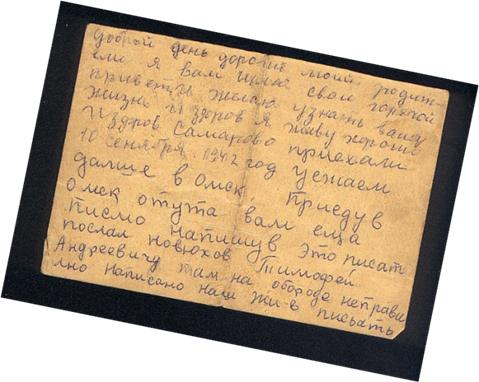 Добрый день дорогие мои родит-
ели я вам шлю свой горячей
привет и желаю узнать вашу
жизнь и здоров я живу хорошо
и здоров Самарово приехали
10 сентября. 1942 год уежаем
дальше в Омск приеду в
Омск отута вам еща
писмо напишув это писат
послал новюхов Тимофей
Андреевичу там на обороде неправи
лно написано наш жив писать